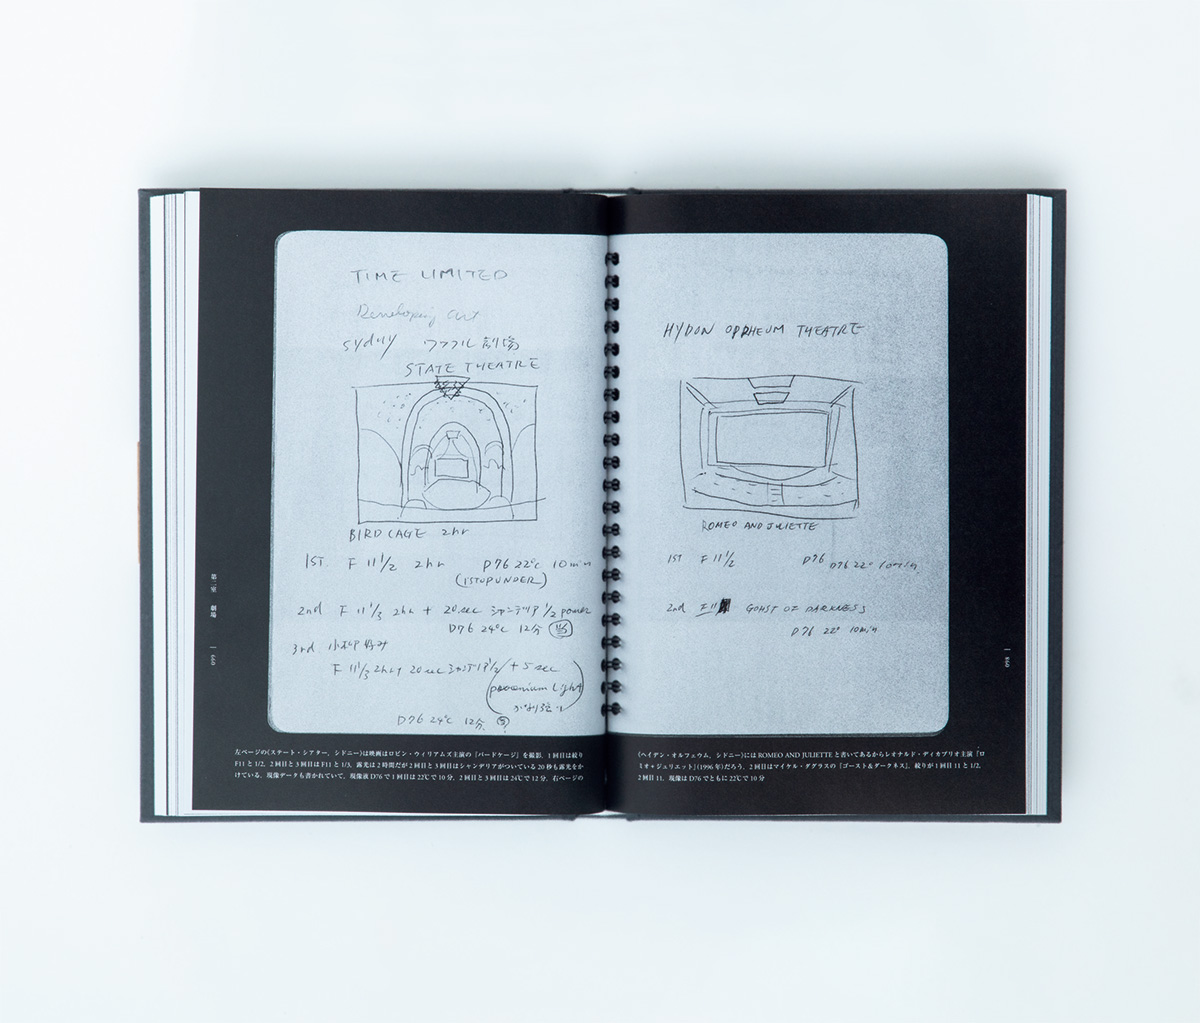 TIME LIMITED
Developing
Sydny ワフル劇場
STATE THEATRE
BIRD CAGE 2hr
1ST. F 11 1/2 2hr D76 22°C 10min
(1STOP UNDER)
2nd F 11 1/3 2hr + 20 sec シャンデリア 1/2 power
D76 24°C 12分
3rd 小柳好み
F 11 1/3 2hr + 20 sec シャンデリア 1/2 / + 5 sec
Light
D76 24°C 12分
左ページの〈ステート・シアター，シドニー〉は映画はロビン・ウィリアムズ主演の『バードケージ』を撮影．1回目は絞り
F11と1/2，2回目と3回目はF11と1/3．露光は2時間だが2回目と3回目はシャンデリアがついている20秒も露光をか
けている．現像データも書かれていて，現像液D76で1回目は22℃で10分，2回目と3回目は24℃で12分．右ページの
099
HYDON ORPHEUM THEATRE
ROMEO AND JULIETTE
1ST F 11 1/2 D76 D76 22° 10min
2nd F11 GOHST OF DARKNESS
D76 22° 10min
〈ヘイデン・オルフェウム，シドニー〉にはROMEO AND JULIETTEと書いてあるからレオナルド・ディカプリオ主演『ロ
ミオ＋ジュリエット』（1996年）だろう．2回目はマイケル・ダグラスの『ゴースト＆ダークネス』．絞りが1回目11と1/2，
2回目11．現像はD76でともに22℃で10分
098